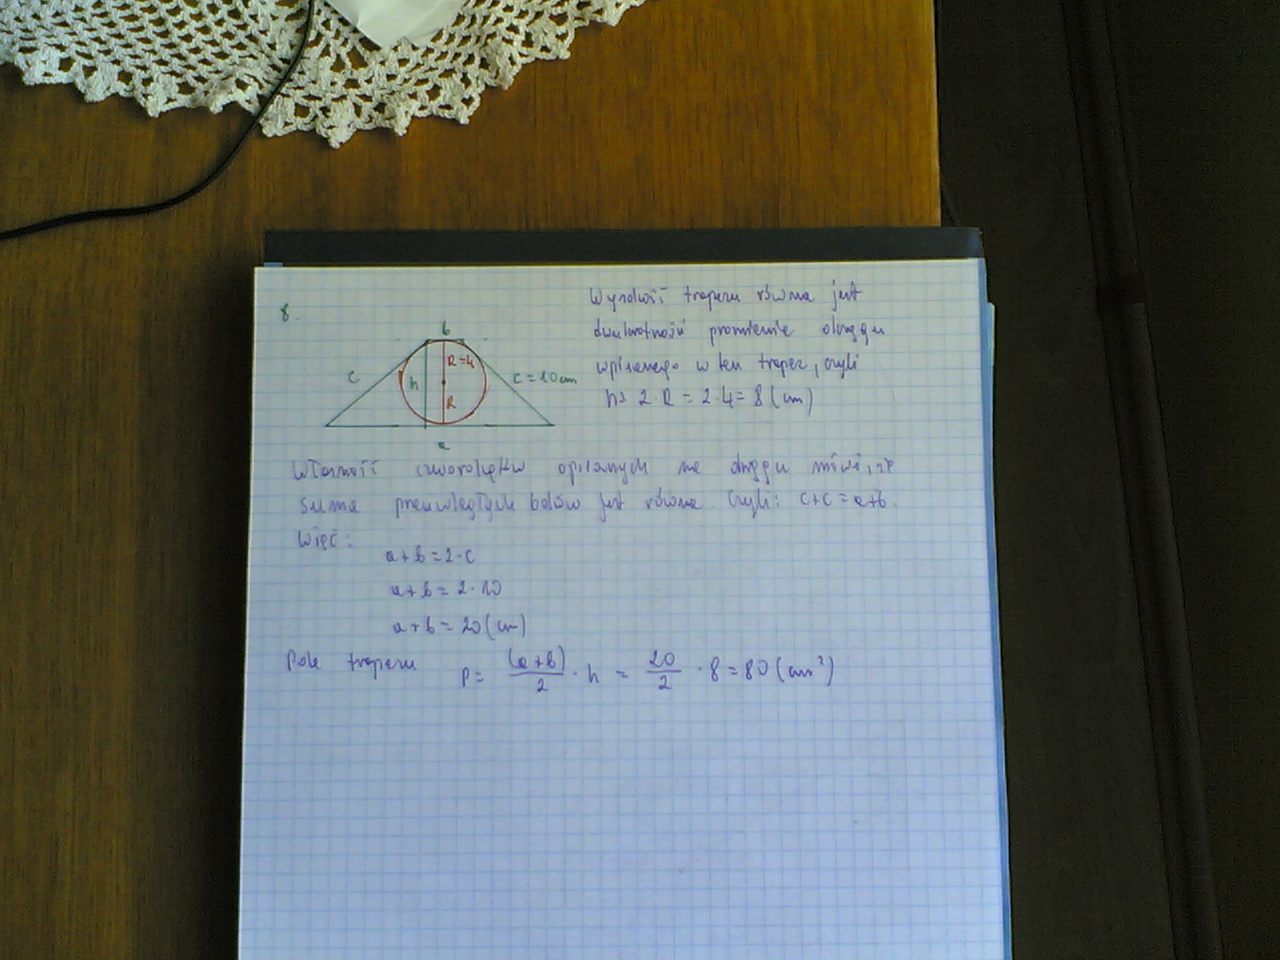 8.
b
c
h
R=4
R
c = 10cm
a
Wysokość trapezu równa jest
dwukrotności promienia okręgu
wpisanego w ten trapez, czyli
h= 2·R = 2·4= 8 (cm)
Własność czworokątów opisanych na okręgu mówi, że
suma przeciwległych boków jest równa. Czyli: c+c = a+b.
Więc:
a+b = 2·c
a+b = 2·10
a+b = 20 (cm)
Pole trapezu P= (a+b)/2 · h = 20/2 · 8 = 80 (cm²)